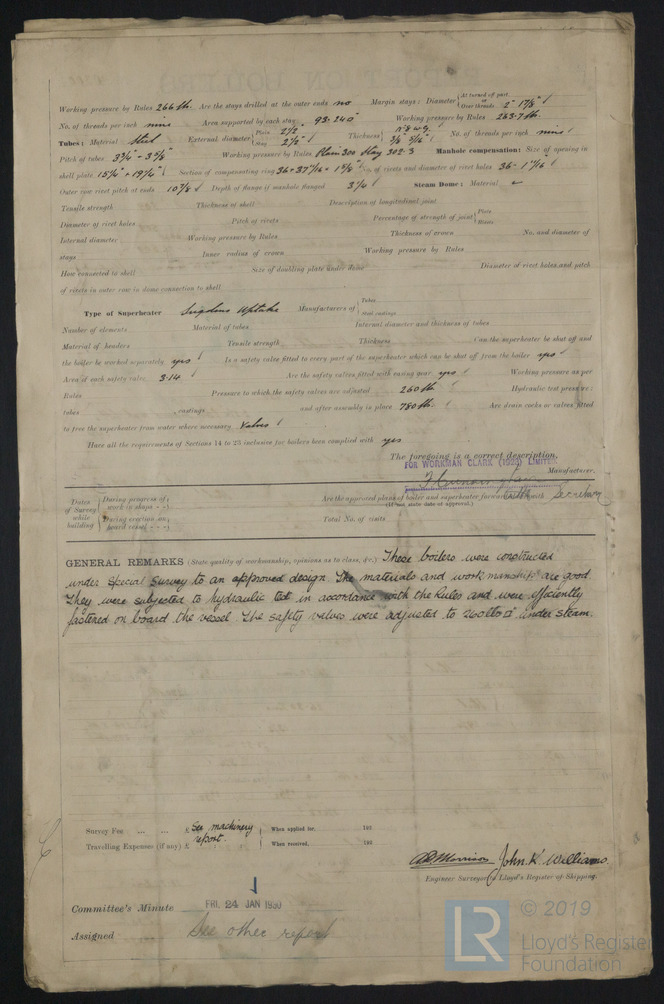 Working pressure by Rules 266 lb. Are the stays drilled at the outer ends no Margin stays: Diameter { At turned off part or Over threads 2" 1 7/8"
No. of threads per inch nine Area supported by each stay 93.240" Working pressure by Rules 263.7 lb.
Tubes: Material Steel External diameter { Plain 2 1/2" Stay 2 1/2" Thickness { No. of threads per inch nine
Pitch of tubes Working pressure by Rules Plain 300 Stay 302.3 Manhole compensation: Size of opening in
shell plate 15 1/4" × 19 1/4" Section of compensating ring No. of rivets and diameter of rivet holes 36 - 1 7/16"
Outer row rivet pitch at ends 10 7/8 Depth of flange if manhole flanged 3 1/2 Steam Dome: Material
Tensile strength Thickness of shell Description of longitudinal joint
Diameter of rivet holes Pitch of rivets Percentage of strength of joint { Plate Rivets
Internal diameter Working pressure by Rules Thickness of crown No. and diameter of
stays Inner radius of crown Working pressure by Rules
How connected to shell Size of doubling plate under dome Diameter of rivet holes and pitch
of rivets in outer row in dome connection to shell
Type of Superheater Sugdens Uptake Manufacturers of { Tubes Steel castings
Number of elements Material of tubes Internal diameter and thickness of tubes
Material of headers Tensile strength Thickness Can the superheater be shut off and
the boiler be worked separately yes Is a safety valve fitted to every part of the superheater which can be shut off from the boiler yes
Area of each safety valve 3.14 Are the safety valves fitted with easing gear yes Working pressure as per
Rules Pressure to which the safety valves are adjusted 260 lb Hydraulic test pressure:
tubes castings and after assembly in place 780 lb. Are drain cocks or valves fitted
to free the superheater from water where necessary Valves
Have all the requirements of Sections 14 to 23 inclusive for boilers been complied with yes
The foregoing is a correct description,
FOR WORKMAN CLARK (1928) LIMITED
Manufacturer.
Secretary
Dates of Survey while building { During progress of work in shops - -
During erection on board vessel - - -
Are the approved plans of boiler and superheater forwarded herewith
(If not state date of approval.)
Total No. of visits
GENERAL REMARKS (State quality of workmanship, opinions as to class, &c.) These boilers were constructed
under special survey to an approved design. The materials and workmanship are good.
They were subjected to hydraulic test in accordance with the Rules and were efficiently
fastened on board the vessel. The safety valves were adjusted to 260 lbs □" under steam.
Survey Fee ... ... £ See machinery report. When applied for 192
Travelling Expenses (if any) £ When received, 192
John K Williams.
Engineer Surveyor to Lloyd's Register of Shipping.
Committee's Minute FRI. 24 JAN 1930
Assigned See other report
LR © 2019
Lloyd's Register
Foundation